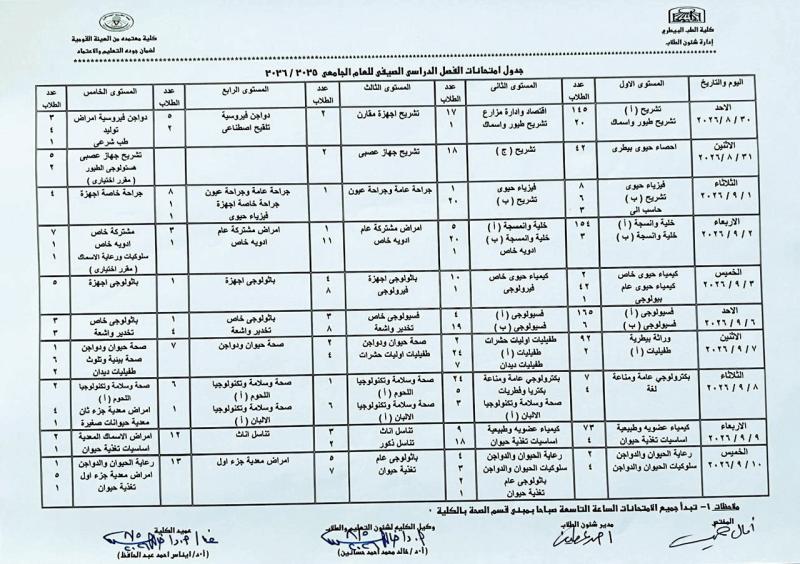 كلية الطب البيطرى
إدارة شئون الطلاب
كلية معتمده من الهيئة القومية
لضمان جوده التعليم والاعتماد
جدول امتحانات الفصل الدراسى الصيفى للعام الجامعى ٢٠٢٥ / ٢٠٢٦
اليوم والتاريخ المستوى الاول عدد الطلاب المستوى الثانى عدد الطلاب المستوى الثالث عدد الطلاب المستوى الرابع عدد الطلاب المستوى الخامس عدد الطلاب
الاحد تشريح ( أ ) ١٤٥ اقتصاد وادارة مزارع ١٧ تشريح اجهزة مقارن ٢ دواجن فيروسية ٥ دواجن فيروسية امراض ٣
٢٠٢٦ / ٨ / ٣٠ تشريح طيور واسماك ٢٠ تشريح طيور واسماك ١ تلقيح اصطناعى ٢ توليد ٤
طب شرعى ١
الاثنين احصاء حيوى بيطرى ٤٢ تشريح ( ج ) ١٨ تشريح جهاز عصبى ٢ تشريح جهاز عصبى ٥
٢٠٢٦/٨/٣١ هستولوجى الطيور ٢
( مقرر اختيارى )
الثلاثاء فيزياء حيوى ٨ فيزياء حيوى ١ جراحة عامة وجراحة عيون ١ جراحة عامة وجراحة عيون ٨ جراحة خاصة اجهزة ٤
٢٠٢٦ / ٩ / ١ تشريح ( ب ) ٦ تشريح ( ب ) ٢٠ جراحة خاصة اجهزة ١
حاسب الى ٣ فيزياء حيوى ١
الاربعاء خلية وانسجة ( أ ) ١٥٤ خلية وانسجة ( أ ) ٥ امراض مشتركة عام ١ امراض مشتركة عام ٣ مشتركة خاص ٧
٢٠٢٦ / ٩ / ٢ خلية وانسجة ( ب ) ٣ خلية وانسجة ( ب ) ٢٠ ادويه خاص ١١ ادويه خاص ١ ادويه خاص ١
ادويه خاص ١ سلوكيات ورعاية الاسماك ١
( مقرر اختيارى )
الخميس كيمياء حيوى خاص ٢ كيمياء حيوى خاص ١٠ باثولوجى اجهزة ٤ باثولوجى اجهزة ١ باثولوجى اجهزة ٥
٢٠٢٦ / ٩ / ٣ كيمياء حيوى عام ٤٢ فيرولوجى ١ فيرولوجى ٨
بيولوجى ١
الاحد فسيولوجى ( أ ) ١٦٥ فسيولوجى ( أ ) ٤ باثولوجى خاص ٣ باثولوجى خاص ٣ باثولوجى خاص ٣
٢٠٢٦ / ٩ / ٦ فسيولوجى ( ب ) ٦ فسيولوجى ( ب ) ١٩ تخدير واشعة ٨ تخدير واشعة ٤ تخدير واشعة ٣
الاثنين وراثة بيطرية ٩٢ طفيليات اوليات حشرات ٢ صحة حيوان ودواجن ٢ صحة حيوان ودواجن ٧ صحة حيوان ودواجن ١
٢٠٢٦ / ٩ / ٧ طفيليات ( أ ) ٢ طفيليات ( أ ) ٢٤ طفيليات اوليات حشرات ٤ صحة بيئية وتلوث ٦
طفيليات ديدان ٧ طفيليات ديدان ١
الثلاثاء بكترولوجي عامة ومناعة ٧ بكترولوجي عامة ومناعة ٢٤ صحة وسلامة وتكنولوجيا ١ صحة وسلامة وتكنولوجيا ٦ صحة وسلامة وتكنولوجيا ٢
٢٠٢٦ / ٩ / ٨ لغة ٤ بكتريا وفطريات ٥ اللحوم ( أ ) اللحوم ( أ ) اللحوم ( أ )
صحة وسلامة وتكنولوجيا ٣ صحة وسلامة وتكنولوجيا ٦ صحة وسلامة وتكنولوجيا ١ امراض معدية جزء ثان ٤
الالبان ( أ ) الالبان ( أ ) الالبان ( أ ) معدية حيوانات صغيرة ١
الاربعاء كيمياء عضويه وطبيعية ٧٣ كيمياء عضويه وطبيعية ٩ تناسل اناث ٣ تناسل اناث ١٢ امراض الاسماك المعدية ٢
٢٠٢٦ / ٩ / ٩ اساسيات تغذية حيوان ٤ اساسيات تغذية حيوان ١٨ تناسل ذكور ٢ اساسيات تغذية حيوان ١
الخميس رعاية الحيوان والدواجن ٢ رعاية الحيوان والدواجن ٤ باثولوجى عام ٥ امراض معدية جزء اول ١٣ رعاية الحيوان والدواجن ١
٢٠٢٦ / ٩ / ١٠ سلوكيات الحيوان والدواجن ٤ سلوكيات الحيوان والدواجن ٣ تغذية حيوان ٧ امراض معدية جزء اول ٥
باثولوجى عام ٤ تغذية حيوان ١
تغذية حيوان ١
ملاحظات ١- تبدأ جميع الامتحانات الساعة التاسعة صباحا بمبنى قسم الصحة بالكلية .
المختص مدير شئون الطلاب وكيل الكلية لشئون التعليم والطلاب عميد الكلية
( أ.د/ خالد محمد أحمد حسانين ) ( أ.د/ ايناس احمد عبد الحافظ )